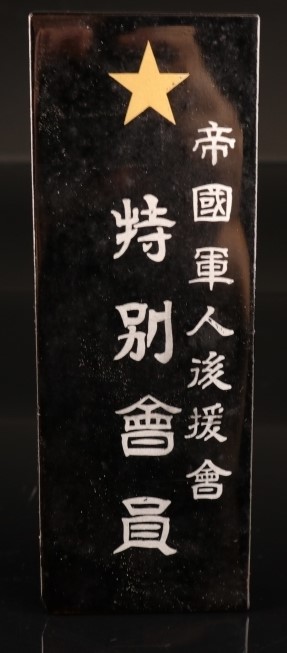 帝國軍人後援會
特別會員